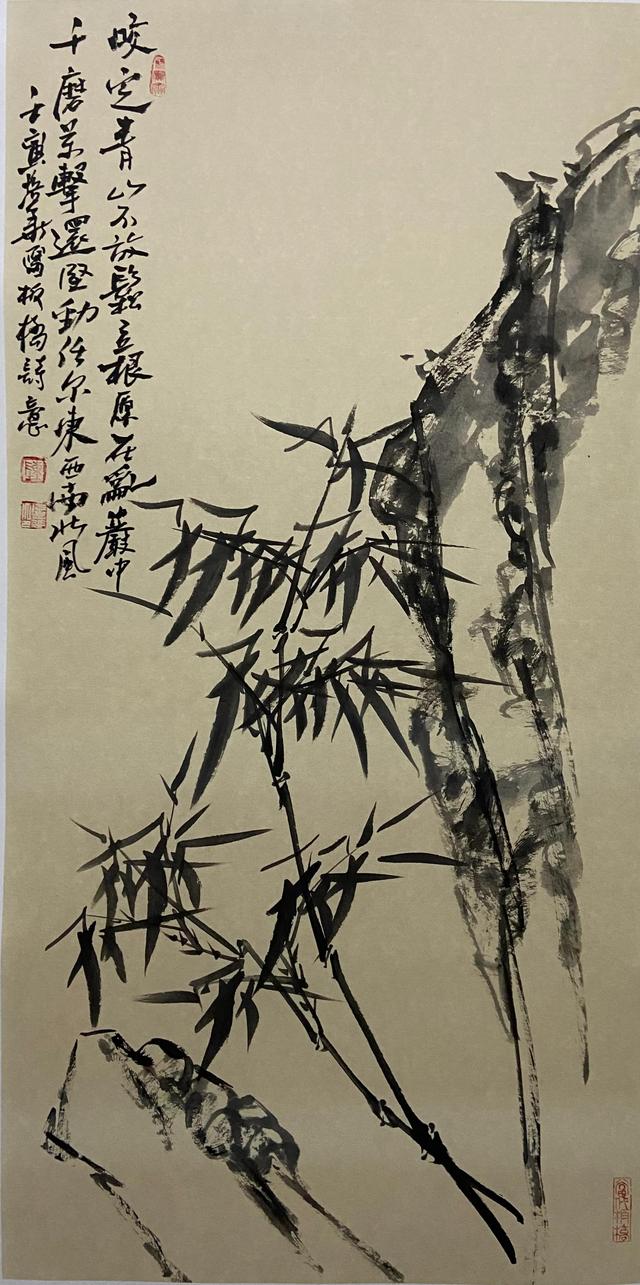 咬定青山不放鬆立根原在亂巖中
千磨萬擊還堅勁任尔東西南北風
壬寅寫板橋詩意